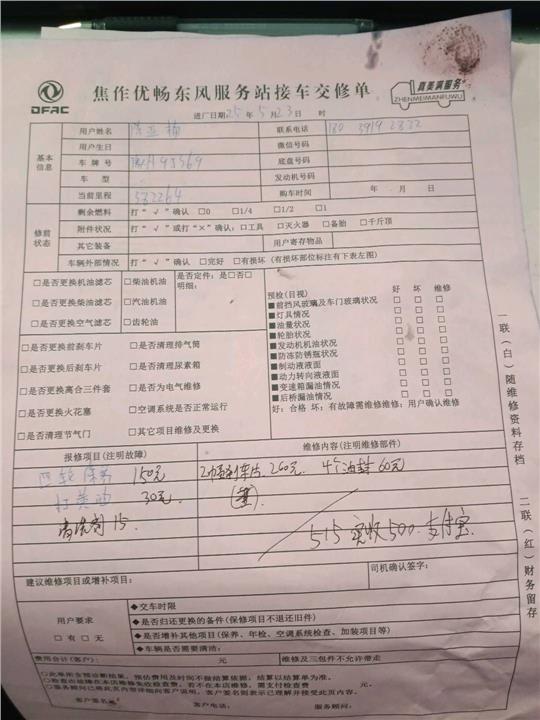 DFAC
焦作优畅东风服务站接车交修单
真美满服务
ZHENMEIMANFUWU
进厂日期:25年5月23日 时
基本信息
用户姓名 联系电话
用户生日 微信号码
车牌号 底盘号码
车型 发动机号码
当前里程 582264 购车时间 年 月 日
修前状态
剩余燃料 打“√”确认 □0 □1/4 □1/2 □1
附件状况 打“√”或打“×”确认:□工具 □灭火器 □备胎 □千斤顶
其它装备 用户寄存物品
车辆外部情况 打“√”确认 □完好 □有损坏(有损部位标注有下表左图)
□是否更换机油滤芯 □柴油机油 是否定件:是□否□
明细:
□是否更换柴油滤芯 □汽油机油
□是否更换空气滤芯 □齿轮油
□是否更换前刹车片 □是否清理排气筒
□是否更换后刹车片 □是否清理尿素箱
□是否更换离合三件套 □是否为电气维修
□是否更换火花塞 □空调系统是否正常运行
□是否清理节气门 □其它项目维修及更换
预检(目视) 好 坏 维修
■前挡风玻璃及车门玻璃状况 □ □ □
■灯具情况 □ □ □
■油量状况 □ □ □
■轮胎状况 □ □ □
■发动机机油状况 □ □ □
■防冻防锈瓶状况 □ □ □
■制动液液面 □ □ □
■动力转向液液面 □ □ □
■变速箱漏油情况 □ □ □
■后桥漏油情况 □ □ □
好:合格 坏:有故障需维修维修:用户确认维修
报修项目(注明故障) 维修内容(注明维修部件)
四轮保养 150元 刹车片 260元 4个油封 60元
打黄油 30元
清洗剂 15
515 实收500 支付宝
建议维修项目或增补项目: 司机确认签字:
用户要求
□有 □无
◆交车时限
◆是否归还更换的备件(保修项目不退还旧件)
◆是否增补其他项目(保养、年检、空调系统检查、加装项目等)
◆车辆是否需要清洁:
费用合计(客户): 元 维修及三包件不允许带走
○此单用含预诊断结果,预估费用及时间不做结算依据,结算以结算单为准。
○检查出故障在本店维修免收检查费,若不在本店维修,需支付检查费 元
○服务顾问已将此页内容详细向客户说明,客户签名则表示已理解并接受此页内容。
客户签名 客户电话: 服务顾问:
一联(白)随维修资料存档
二联(红)财务留存